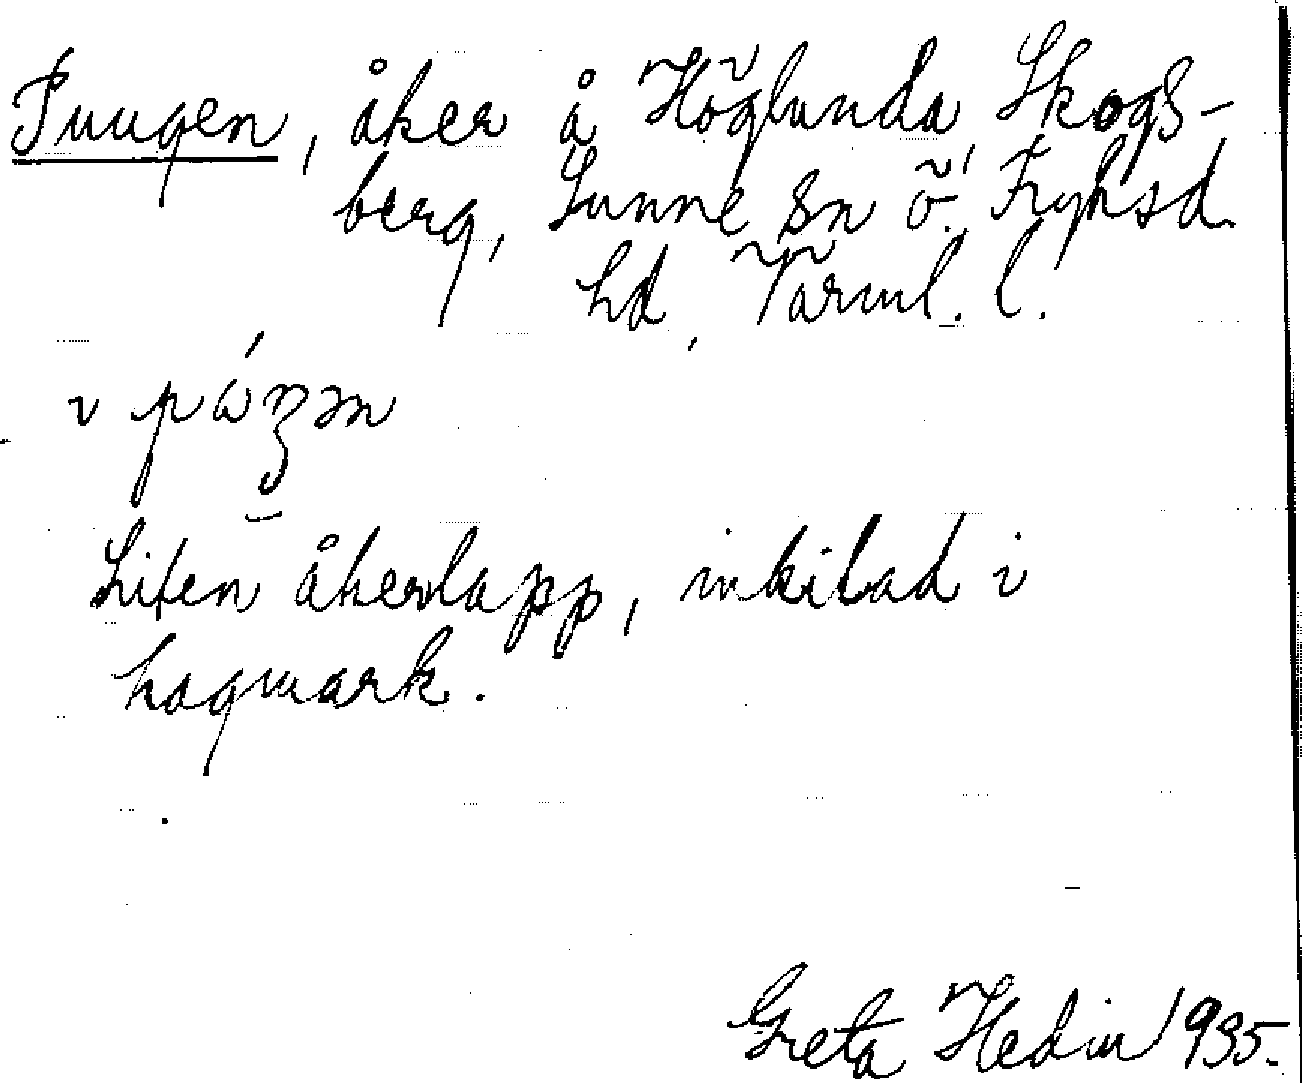 Pungen, åker å Höglunda, Skogs-
berg, Sunne sn, Ö. Fryksd.
hd, Värml. l.
i
Liten åkerlapp, inkilad i
hagmark.
Greta Hedin 1935.